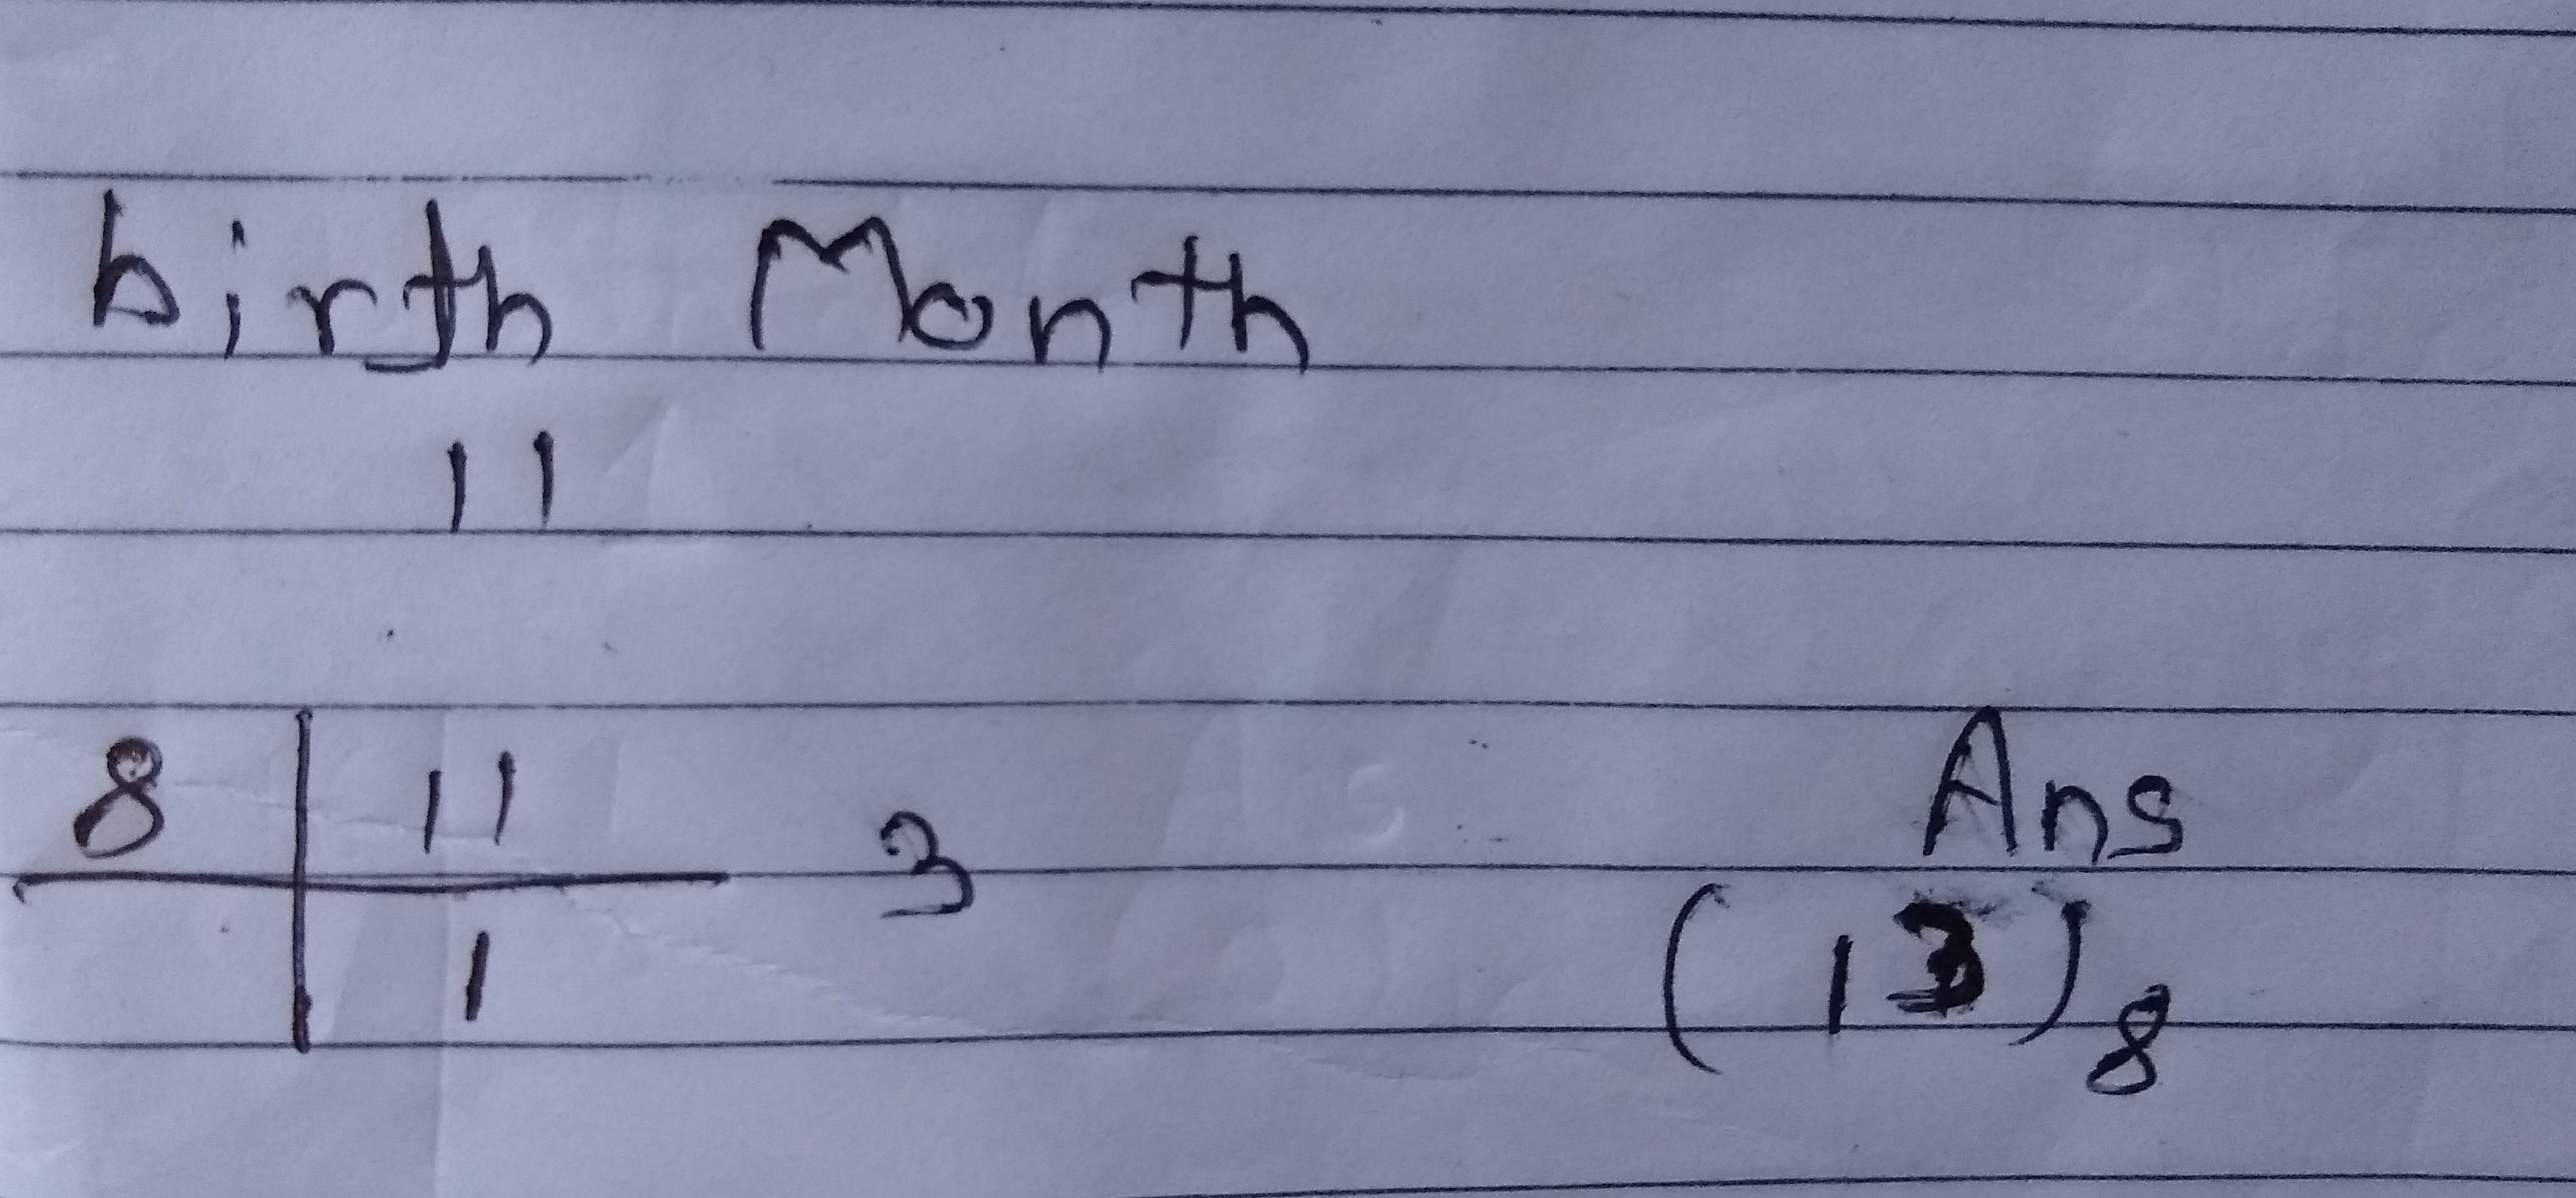 birth Month
11
8 | 11 3
1
Ans
(13)8